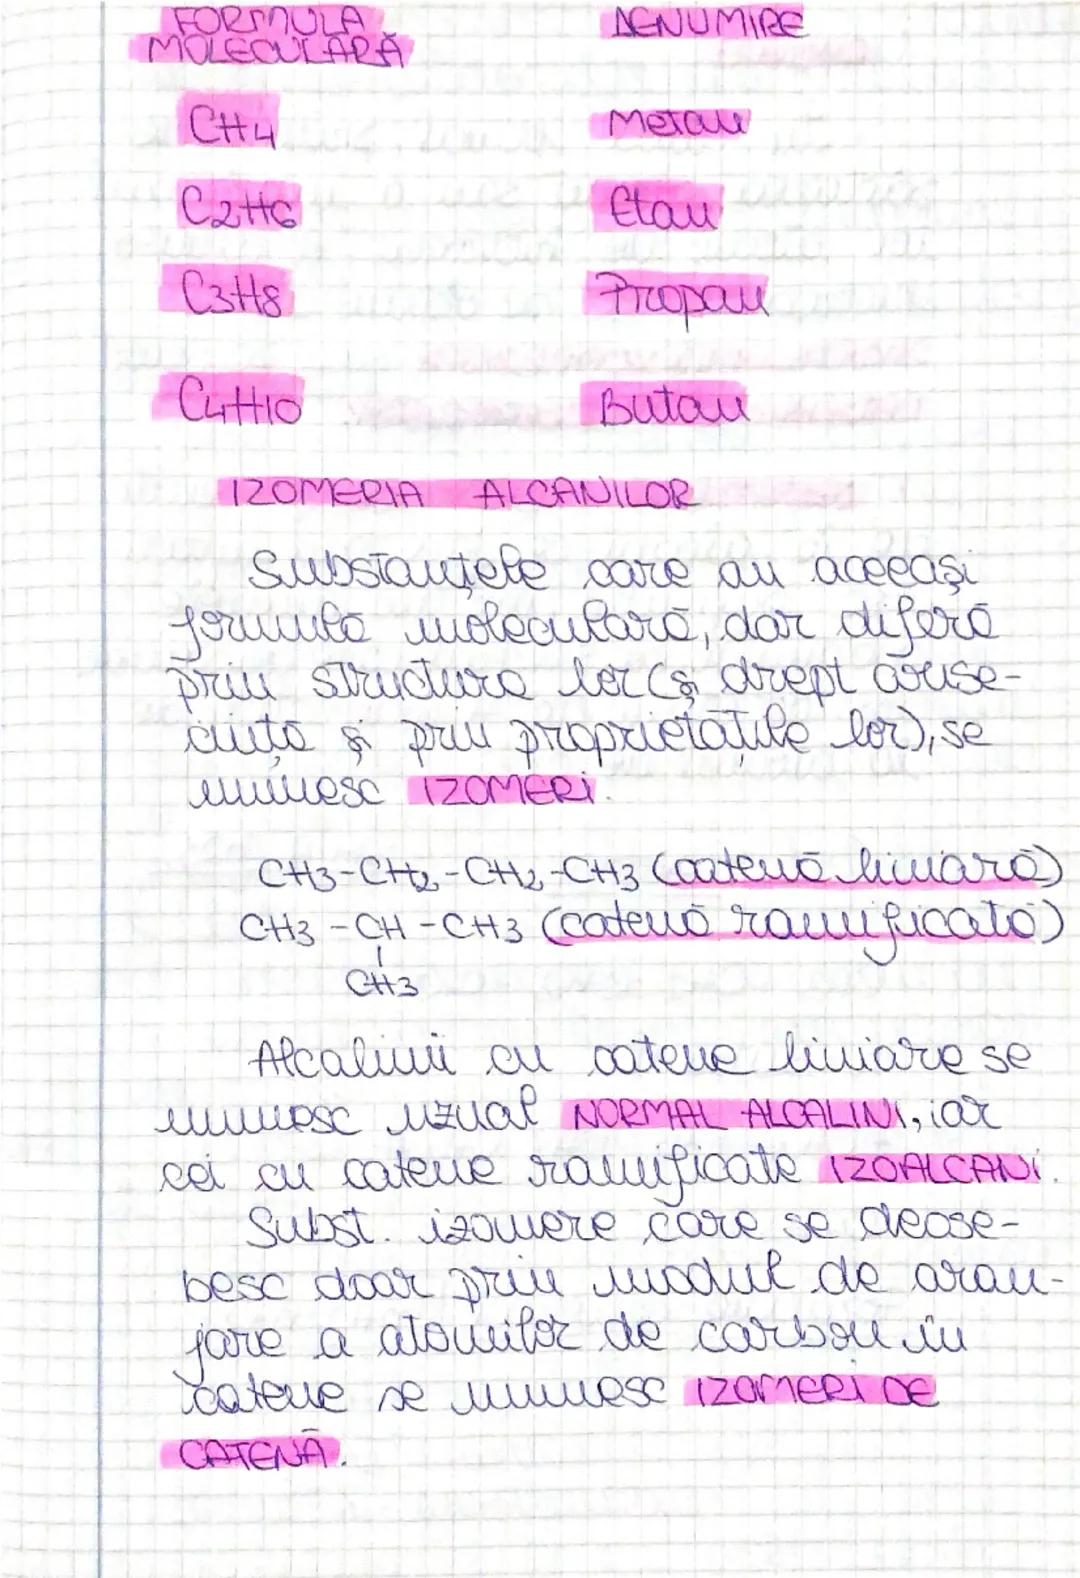 FORMULA DENUMIRE
MOLECULARĂ
CH4 Metan
C2H6 Etan
C3H8 Propan
C4H10 Butan
IZOMERIA ALCANILOR
Substanțele care au aceeași
formulă moleculară, dar diferă
prin structura lor (și drept conse-
cință și prin proprietățile lor), se
numesc IZOMERI.
CH3-CH2-CH2-CH3 (catenă liniară)
CH3-CH-CH3 (catenă ramificată)
CH3
Alcalinii cu catene liniare se
numesc uzual NORMAL ALCALINI, iar
cei cu catene ramificate IZOALCANI.
Subst. izomere care se deose-
besc doar prin modul de aran-
jare a atomilor de carbon în
catene se numesc IZOMERI DE
CATENĂ.